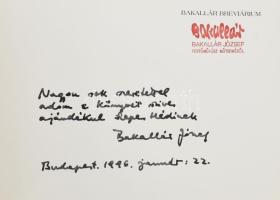 BAKALLÁR BREVIÁRIUM
Bakallár
BAKALLÁR JÓZSEF
FESTŐMŰVÉSZ MŰTERMÉBŐL
Nagyon sok szeretettel
adom e könyvet
ajándékul Szepes Hédinek
Bakallár József
Budapest. 1996. január. 22.